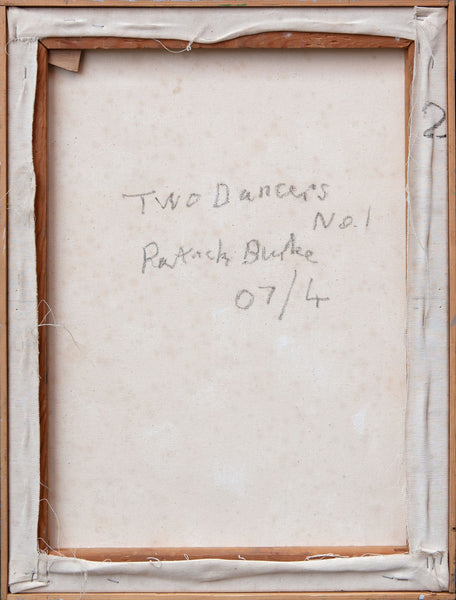 2
Two Dancers
No.1
Patrick Burke
07/4